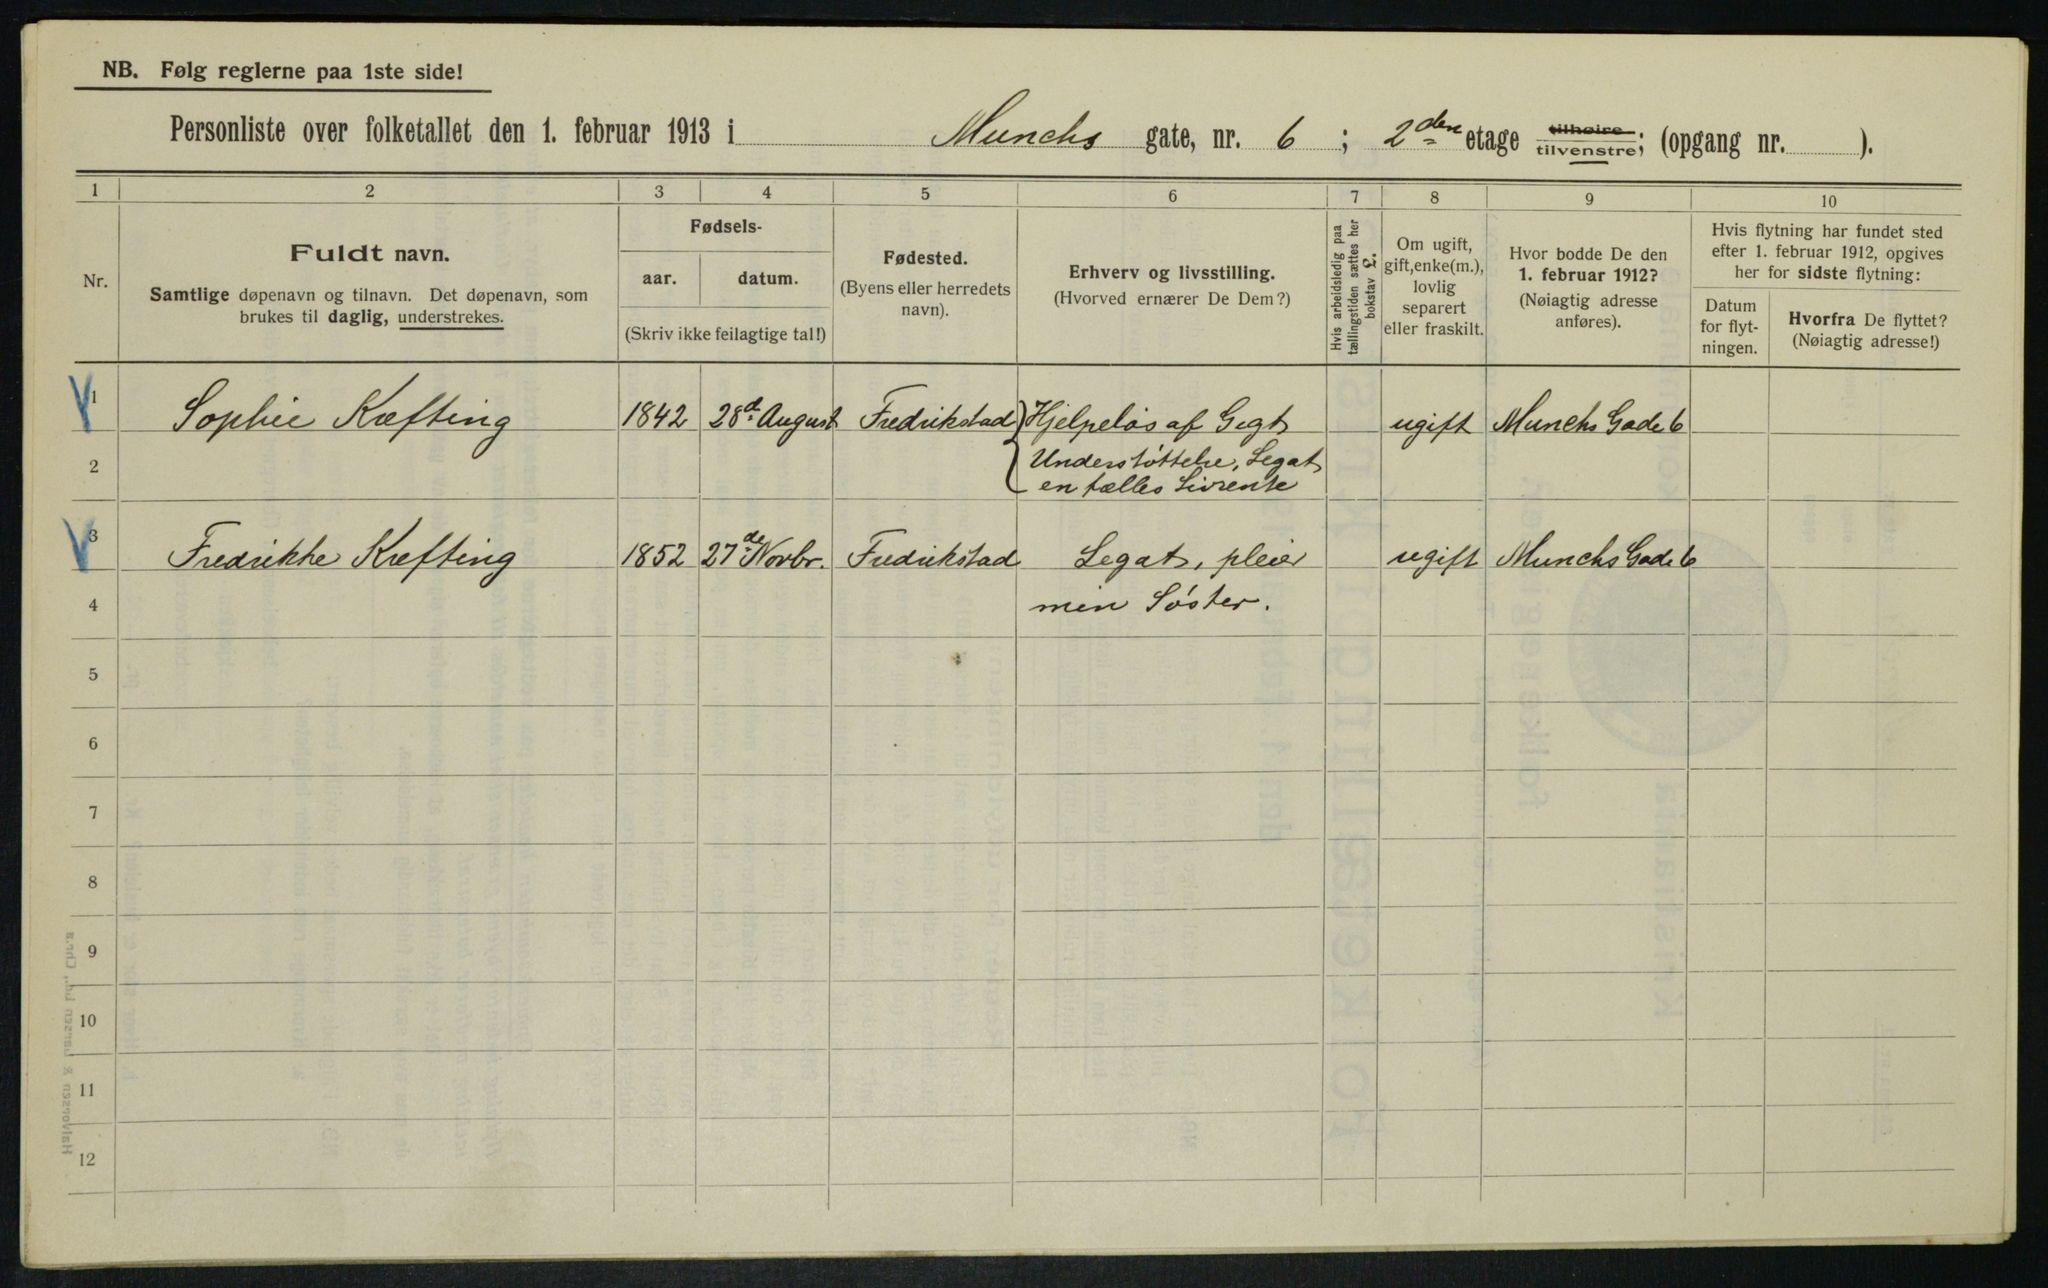 NB. Følg reglerne paa 1ste side!
Personliste over folketallet den 1. februar 1913 i Munchs gate, nr. 6 ; 2den etage tilhøire tilvenstre; (opgang nr. ).
1 2 3 4 5 6 7 8 9 10
Nr.
Fuldt navn.
Samtlige døpenavn og tilnavn. Det døpenavn, som
brukes til daglig, understrekes.
Fødsels-
aar. datum.
(Skriv ikke feilagtige tal!)
Fødested.
(Byens eller herredets
navn).
Erhverv og livsstilling.
(Hvorved ernærer De Dem?)
Hvis arbeidsledig paa
tællingstiden sættes her
bokstav L.
Om ugift,
gift, enke(m.),
lovlig
separert
eller fraskilt.
Hvor bodde De den
1. februar 1912?
(Nøiagtig adresse
anføres).
Hvis flytning har fundet sted
efter 1. februar 1912, opgives
her for sidste flytning:
Datum
for flyt-
ningen.
Hvorfra De flyttet?
(Nøiagtig adresse!)
1 Sophie Kræfting 1842 28d. August Fredrikstad Hjelpeløs af Gigt ugift Munchs Gade 6
2 Understøttelse, Legat
en fælles Livrente
3 Fredrikke Kræfting 1852 27de Novbr. Fredrikstad Legat, pleier ugift Munchs Gade 6
4 min Søster.
5
6
7
8
9
10
11
12
Halvorsen & Larsen Ld., Chr.a